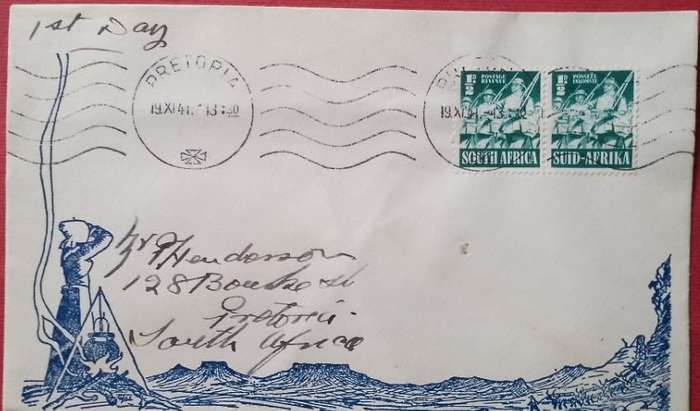 1st Day
PRETORIA
19.XI.41. 13:30
19.XI.41.-13:30
½D
POSTAGE
REVENUE
½D
POSSEEL
INKOMSTE
SOUTH AFRICA
SUID-AFRIKA
Mr P Henderson
128 Bourke St
Pretoria
South Africa